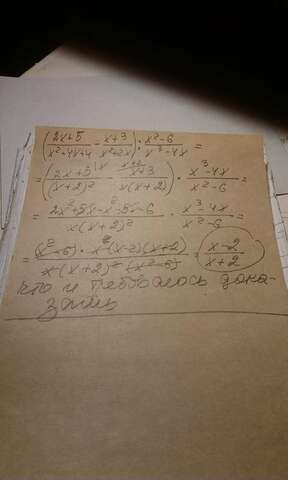 (2x+5/x²+4x+4 - x+3/x²+2x) : x²-6/x³-4x =
= (2x+5\x/(x+2)² - x+2/x+3/x(x+2)) · x³-4x/x²-6 =
= 2x²+5x-x²-5x-6/x(x+2)² · x³-4x/x²-6 =
= (x²-6) · x(x-2)(x+2)/x(x+2)²(x²-6) = x-2/x+2
что и требовалось дока-
зать